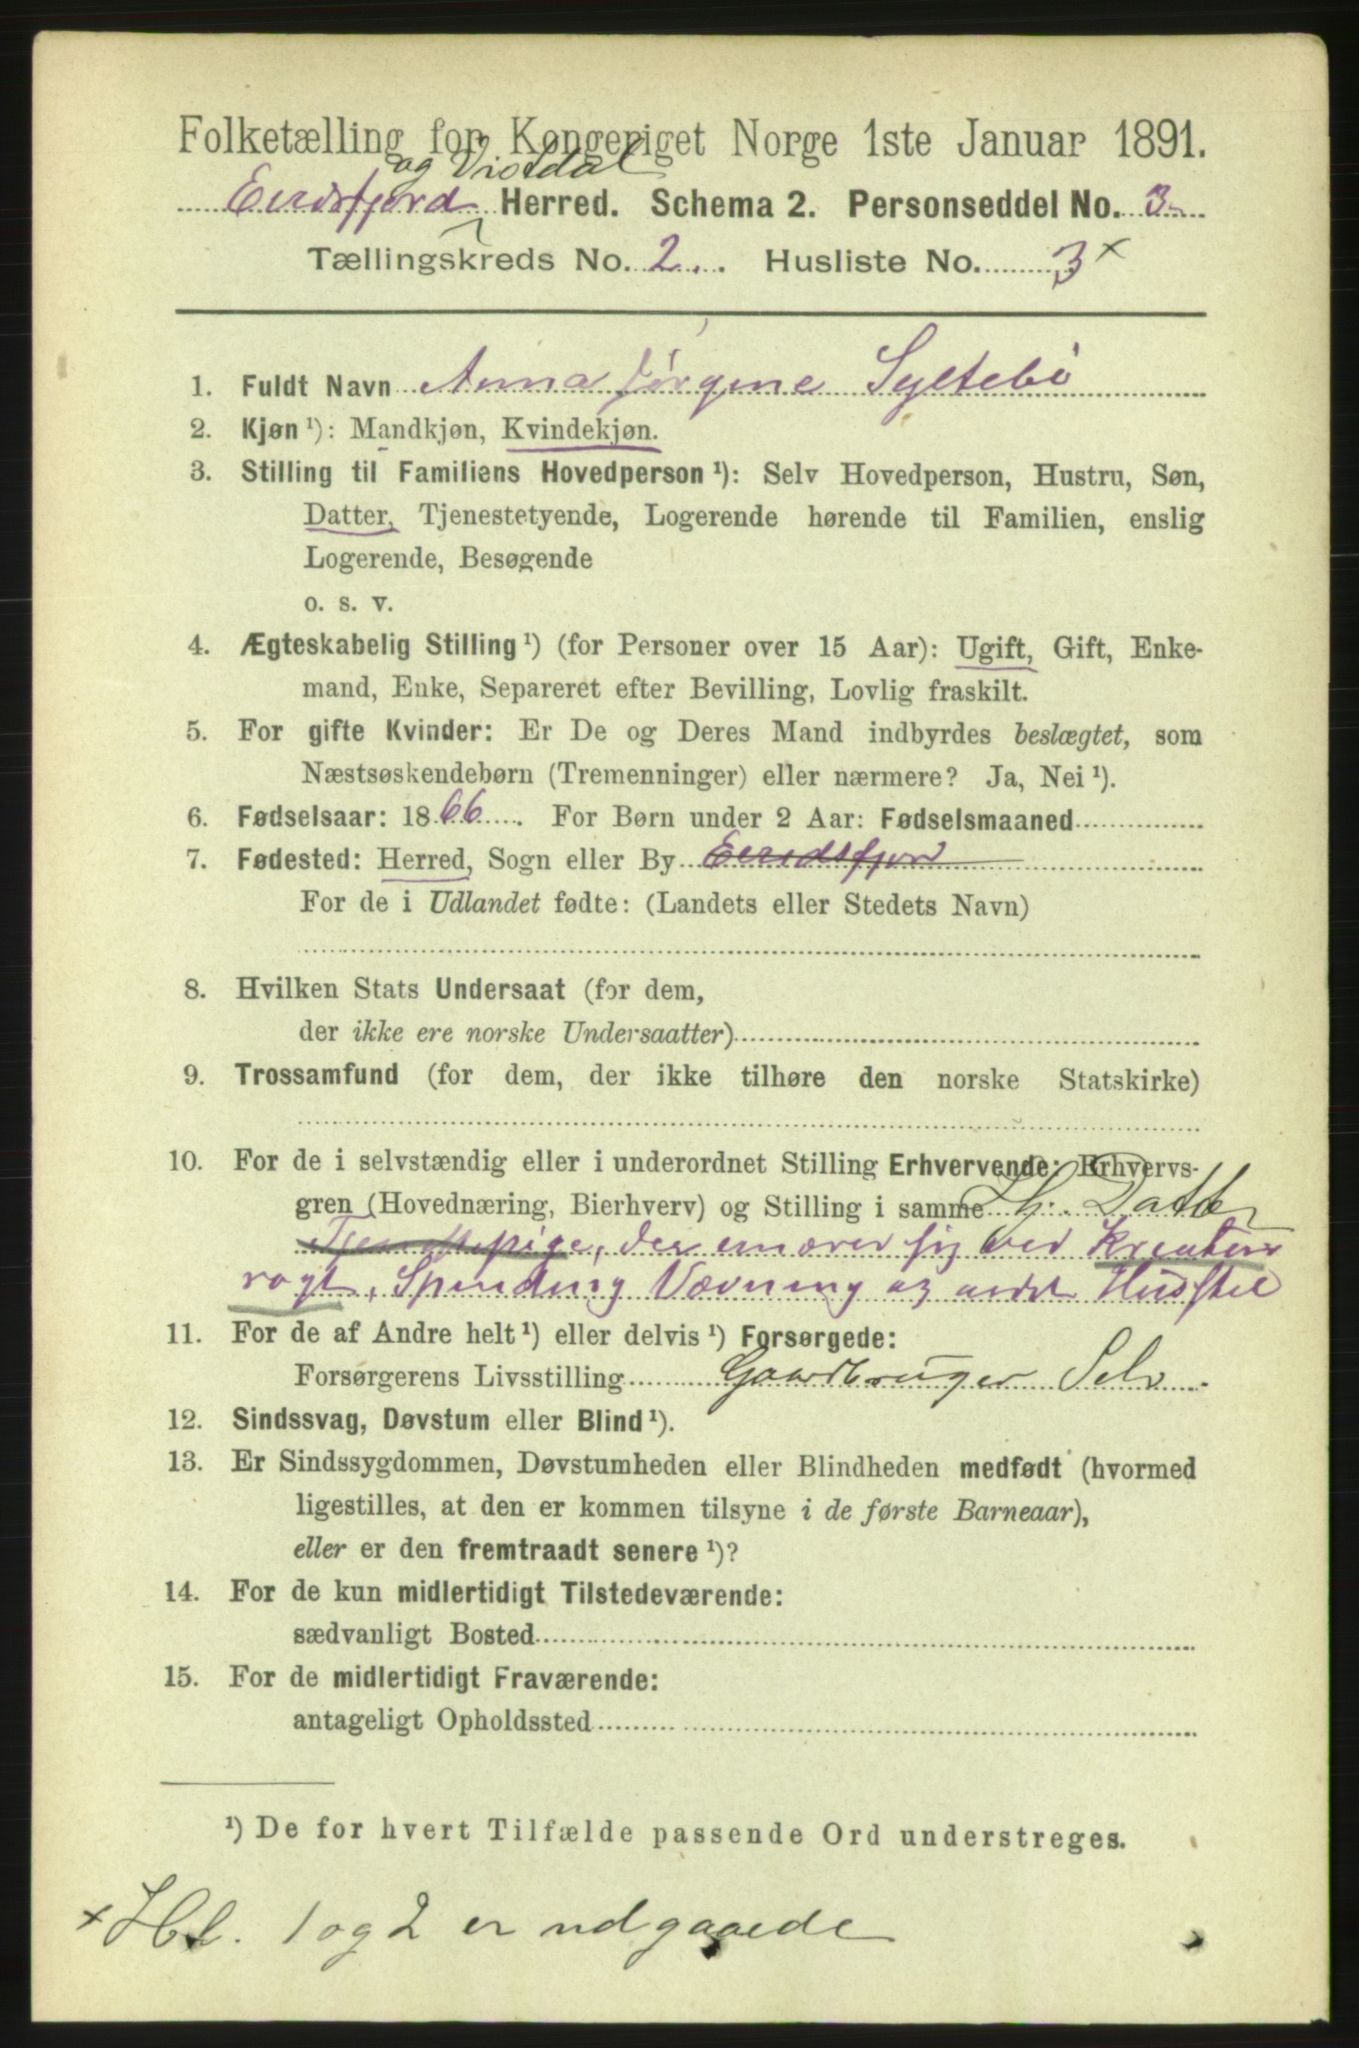 Folketælling for Kongeriget Norge 1ste Januar 1891.
og Vistdal
Eirdsfjord Herred. Schema 2. Personseddel No. 3
Tællingskreds No. 2. Husliste No. 3 x
1. Fuldt Navn Anna Jørgine Syltebø
2. Kjøn ¹): Mandkjøn, Kvindekjøn.
3. Stilling til Familiens Hovedperson ¹): Selv Hovedperson, Hustru, Søn,
Datter, Tjenestetyende, Logerende hørende til Familien, enslig
Logerende, Besøgende
o. s. v.
4. Ægteskabelig Stilling ¹) (for Personer over 15 Aar): Ugift, Gift, Enke-
mand, Enke, Separeret efter Bevilling, Lovlig fraskilt.
5. For gifte Kvinder: Er De og Deres Mand indbyrdes beslægtet, som
Næstsøskendebørn (Tremenninger) eller nærmere? Ja, Nei ¹).
6. Fødselsaar: 1866. For Børn under 2 Aar: Fødselsmaaned
7. Fødested: Herred, Sogn eller By Eiridsfjord
For de i Udlandet fødte: (Landets eller Stedets Navn)
8. Hvilken Stats Undersaat (for dem,
der ikke ere norske Undersaatter)
9. Trossamfund (for dem, der ikke tilhøre den norske Statskirke)
10. For de i selvstændig eller i underordnet Stilling Erhvervende: Erhvervs-
gren (Hovednæring, Bierhverv) og Stilling i samme Lh. Datter
Tjenestepige, der ernærer sig ved Kreatur
røgt, Spinding Vævning og andet Husstel
11. For de af Andre helt ¹) eller delvis ¹) Forsørgede:
Forsørgerens Livsstilling Gaardbruger Selv
12. Sindssvag, Døvstum eller Blind ¹).
13. Er Sindssygdommen, Døvstumheden eller Blindheden medfødt (hvormed
ligestilles, at den er kommen tilsyne i de første Barneaar),
eller er den fremtraadt senere ¹)?
14. For de kun midlertidigt Tilstedeværende:
sædvanligt Bosted
15. For de midlertidigt Fraværende:
antageligt Opholdssted
¹) De for hvert Tilfælde passende Ord understreges.
x Hl. 1 og 2 er udgaaede